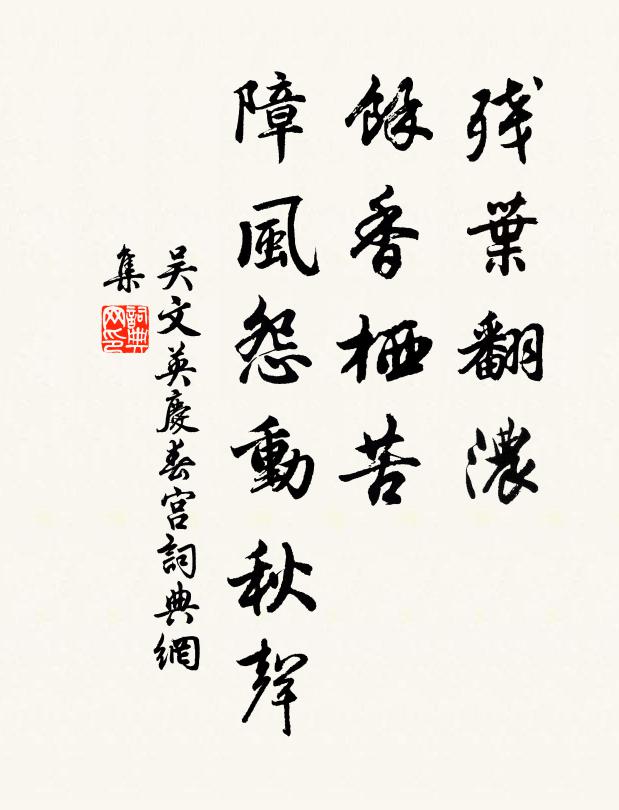 残葉翻濃
餘香栖苦
障風怨動秋聲
吳文英慶春宮詞典網
集
詞典网印